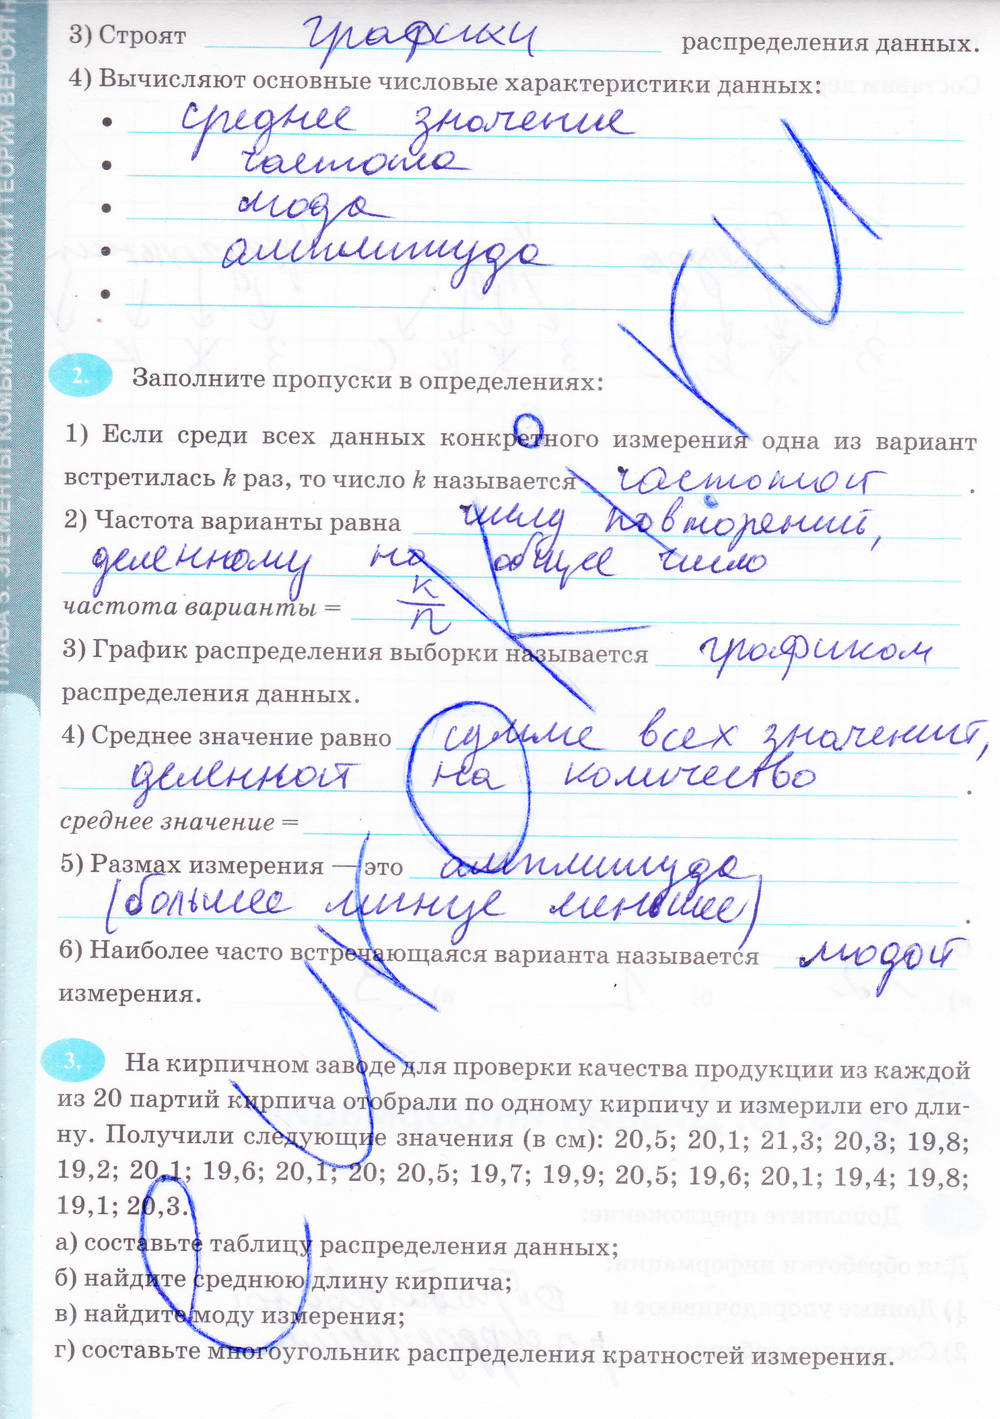 3) Строят графики распределения данных.
4) Вычисляют основные числовые характеристики данных:
• среднее значение
• частота
• мода
• амплитуда
•
2. Заполните пропуски в определениях:
1) Если среди всех данных конкретного измерения одна из вариант
встретилась k раз, то число k называется частотой .
2) Частота варианты равна числу повторений,
деленному на общее число
частота варианты = к/п
3) График распределения выборки называется графиком
распределения данных.
4) Среднее значение равно сумме всех значений,
деленной на количество .
среднее значение =
5) Размах измерения — это амплитуда
(большее минус меньшее) .
6) Наиболее часто встречающаяся варианта называется модой
измерения.
3. На кирпичном заводе для проверки качества продукции из каждой
из 20 партий кирпича отобрали по одному кирпичу и измерили его дли-
ну. Получили следующие значения (в см): 20,5; 20,1; 21,3; 20,3; 19,8;
19,2; 20,1; 19,6; 20,1; 20; 20,5; 19,7; 19,9; 20,5; 19,6; 20,1; 19,4; 19,8;
19,1; 20,3.
а) составьте таблицу распределения данных;
б) найдите среднюю длину кирпича;
в) найдите моду измерения;
г) составьте многоугольник распределения кратностей измерения.